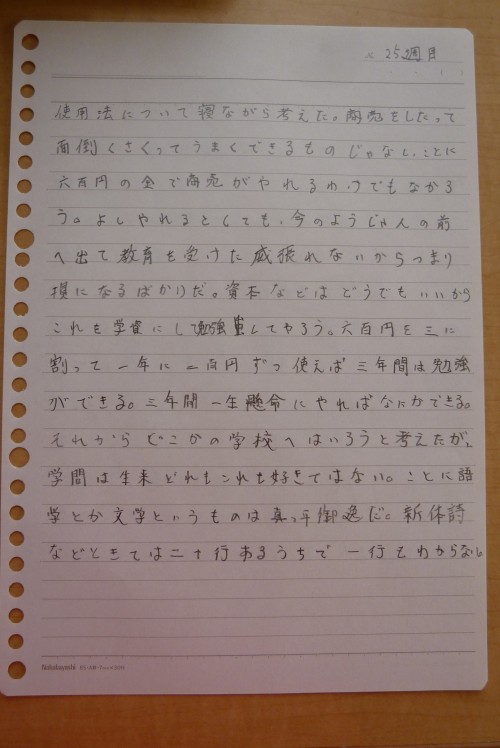 25週目
使用法について寝ながら考えた。商売をしたって
面倒くさくってうまくできるものじゃなし、ことに
六百円の金で商売がやれるわけでもなかろ
う。よしやれるとしても、今のようじゃ人の前
へ出て教育を受けた威張れないからつまり
損になるばかりだ。資本などはどうでもいいから
これを学資にして勉強してやろう。六百円を三に
割って一年に二百円ずつ使えば三年間は勉強
ができる。三年間一生懸命にやればなにかできる。
それからどこかの学校へはいろうと考えたが、
学問は生来どれもこれも好きではない。ことに語
学とか文学というものは真っ平御免だ。新体詩
などときては二十行あるうちで一行もわからない。
Nakabayashi